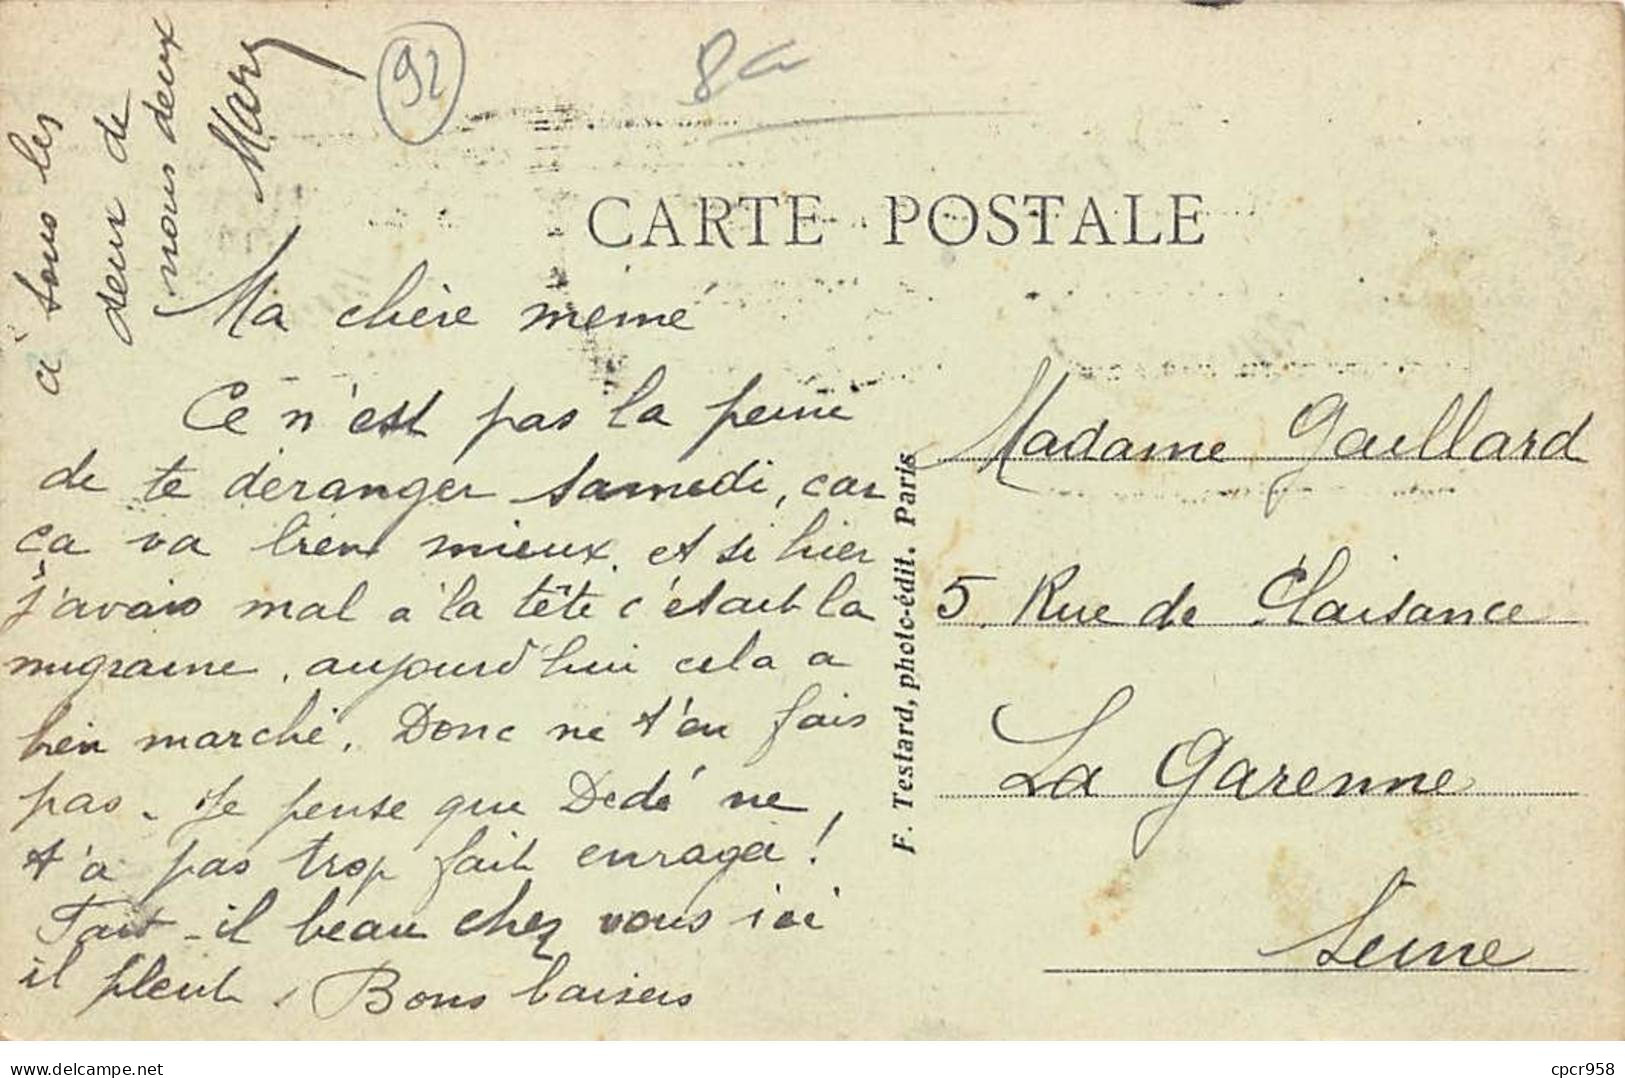 CARTE POSTALE
92
Ma chère mémé
Ce n'est pas la peine
de te déranger samedi, car
ça va bien mieux, et si hier
j'avais mal à la tête c'était la
migraine, aujourd'hui cela a
bien marché. Donc ne t'en fais
pas. Je pense que Dédé ne
t'a pas trop fait enrager!
Fait-il beau chez vous ici
il pleut. Bons baisers
à tous les
deux de
nous deux
Mary
F. Testard, photo-édit. Paris
Madame Gaillard
5, Rue de Plaisance
La Garenne
Seine
delcampe.net
cpcr958